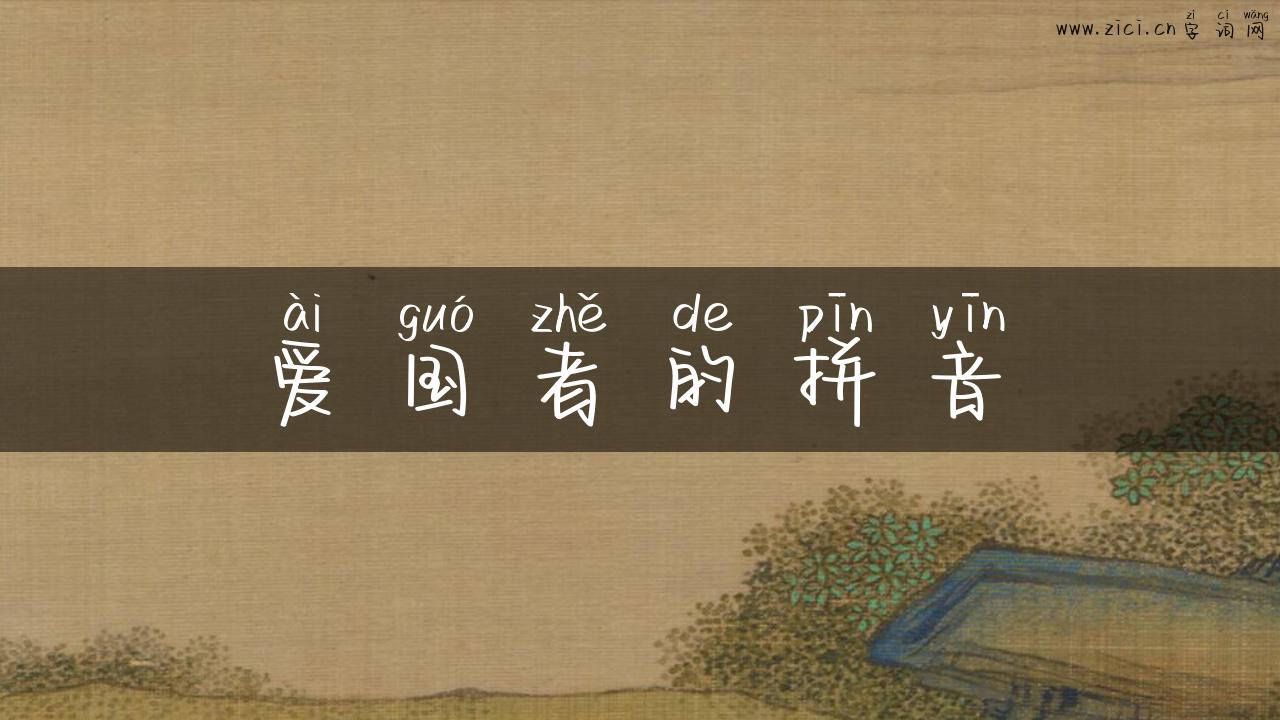 zì cí wǎng
www.zici.cn 字词网
ài guó zhě de pīn yīn
爱国者的拼音